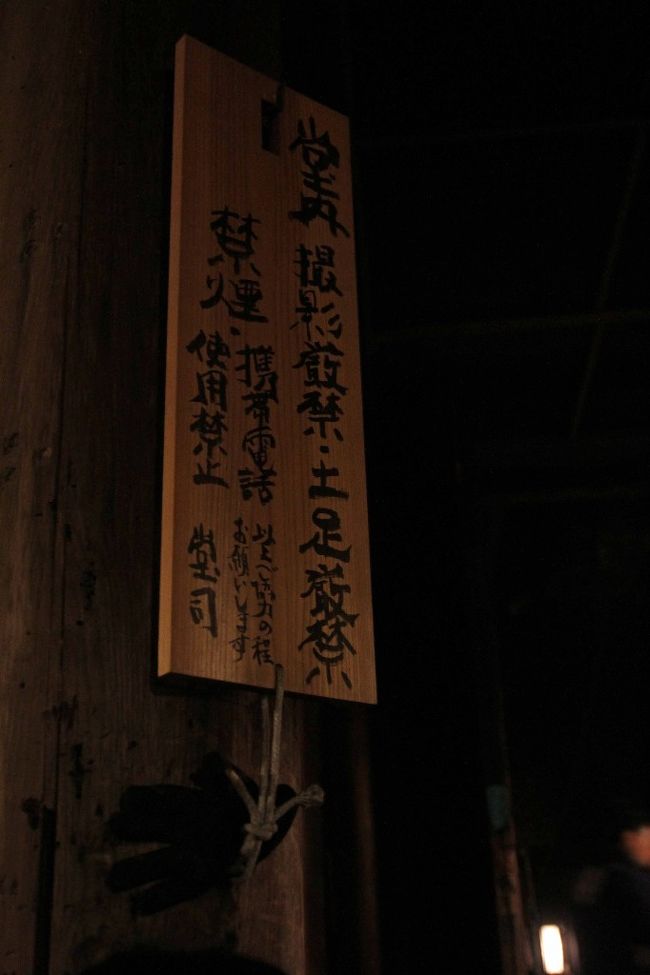 堂内撮影厳禁・土足厳禁
禁煙・携帯電話
使用禁止
以上ご協力の程
お願いします
堂司